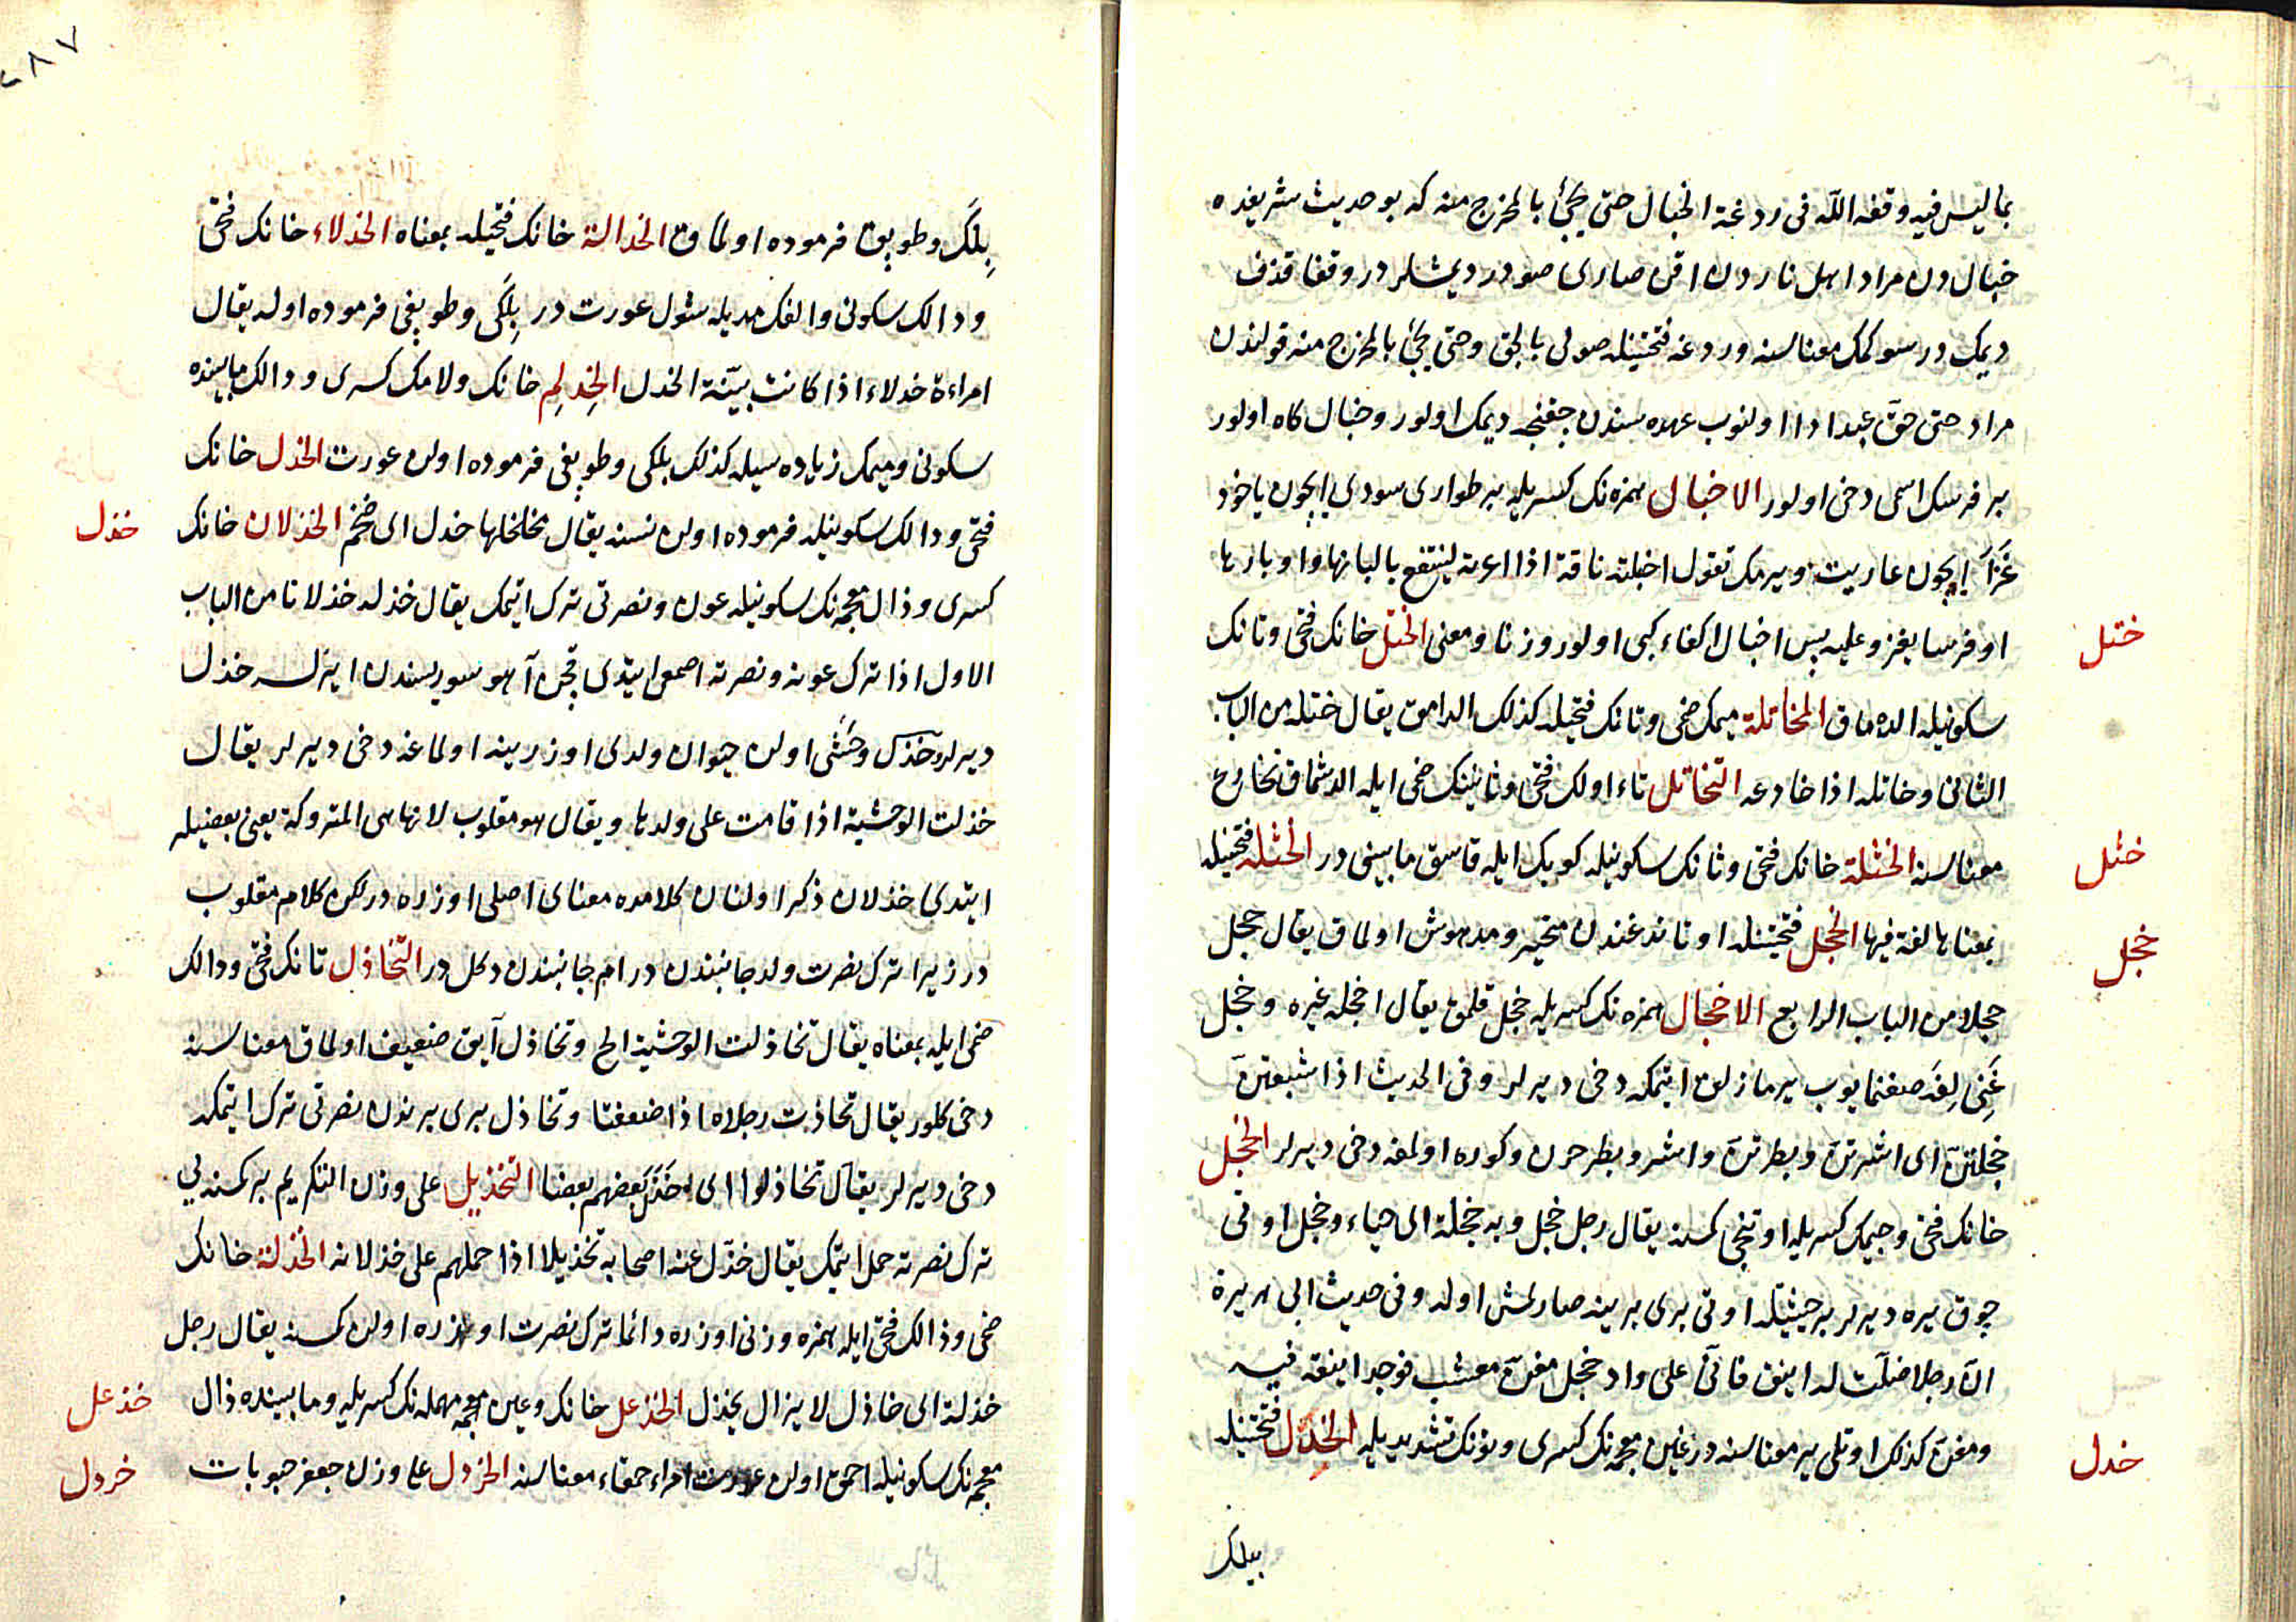 بما ليس فيه وقفه اللّه فى ردغة الخبال حتى يجئ بالمخرج منه كه بو حديث شريفده
خبال دن مراد اهل ناردن اقن صارى صودر ديمشلر در وقفا قذف
ديمك در سوكمك معناسنه وردغه فتحتينله صولى بالجق وحتى يجئ بالمخرج منه قولندن
مراد حتى حقّ عبد ادا اولنوب عهده سندن چقنجه ديمك اولور وخبال كاه اولور
بر فرسك اسمى دخى اولور الاخبال همزه نك كسريله بر طوارى سودى ايچون ياخود
غَزَا ايچون عاريت ويرمك تقول اخبلته ناقة اذا اعرته لينتفع بالبانها واوبارها
او فرسا يغزو عليه پس اخبال اكفاء كبى اولور وزنا ومعنى الختل خانك فتحى وتانك
ختل
سكونيله الدامق المخاتلة ميمك ضمى وتانك فتحيله كذلك الدامق يقال ختله من الباب
الثانى وخاتله اذا خادعه التخاتل تاء اولك فتحى وتانينك ضمى ايله الدشمق تخادع
معناسنه الخثلة خانك فتحى وثانك سكونيله كوبك ايله قاسق مابينى در الخثله فتحتينله
خثل
بمعناها لغة فيها الخجل فتحتينله اوتاندغندن متحير ومدهوش اولمق يقال خجل
خجل
خجلا من الباب الرابع الاخجال همزه نك كسريله خجل قلمق يقال اخجله غيره وخجل
غِنى لِغَه صغنمايوب يرمازلق ايتمكه دخى ديرلر وفى الحديث اذا شبعتنّ
خجلتنّ اى اشرتنّ وبطرتنّ واشر وبطر حرن وكوره اولمغه دخى ديرلر الخجل
خانك فتحى وجيمك كسريله اوتنجى كمسنه يقال رجل خجل وبه خجلة اى حياء وخجل اوتى
چوق يره ديرلر بر حيثيتله اوتى برى برينه صارلمش اوله وفى حديث ابى هريرة
انّ رجلا ضلّت له اينق فاتى على واد خجل مغنّ معشب فوجد اينقه فيه
ومغنّ كذلك اوتلى ير معناسنه در غين معجمه نك كسرى ونونك تشديديله الخدل فتحتينله
خدل
بيلك
٢٨٧
بِلَكى وطوپق فرموده اولمق الخدالة خانك فتحيله بمعناه الخدلاء خانك فتحى
ودالك سكونى والفك مديله شول عورت در بِلَكى وطوپغى فرموده اوله يقال
امراءة خدلاء اذا كانت بيّنة الخدل الخِدلِم خانك ولامك كسرى ودالك مابينده
سكونى وميمك زياده سيله كذلك بلكى وطوپغى فرموده اولن عورت الخدل خانك
فتحى ودالك سكونيله فرموده اولن نسنه يقال مخلخلها خدل اى ضخم الخذلان خانك
خذل
كسرى وذال معجمه نك سكونيله عون ونصرتى ترك ايتمك يقال خذله خذلانا من الباب
الاول اذا ترك عونه ونصرته اصمعى ايتدى قچن آهو سوريسندن ايرلسه خذل
ديرلر وخذل وحشى اولن حيوان ولدى اوزرينه اولماغه دخى ديرلر يقال
خذلت الوحشية اذا قامت على ولدها ويقال هو مقلوب لانها هى المتروكة يعنى بعضيلر
ايتدى خذلان ذكر اولنان كلامده معناى اصلى اوزره در لكن كلام مقلوب
در زيرا ترك نصرت ولد جانبندن در ام جانبندن دكل در التّخاذل تانك فتحى ودالك
ضمى ايله بمعناه يقال تخاذلت الوحشية الخ وتخاذل آيق ضعيف اولمق معناسنه
دخى كلور يقال تخاذلت رجلاه اذا ضعفتا وتخاذل برى برندن نصرتى ترك ايتمكه
دخى ديرلر يقال تخاذلوا اى خَذَل بعضهم بعضا التخذيل على وزن التكريم بر كمسنه يى
ترك نصرته حمل ايتمك يقال خذّل عنه اصحابه تخذيلا اذا حملهم على خذلانه الخذلة خانك
ضمى وذالك فتحى ايله همزه وزنى اوزره دائما ترك نصرت اوزره اولن كمسنه يقال رجل
خذلة اى خاذل لا يزال يخذل الخذعل خانك وعين مهمله نك كسريله ومابينده ذال
خذعل
معجمه نك سكونيله احمق اولن عورت امراء حمقاء معناسنه الخردل على وزن جعفر حبوبات
خردل